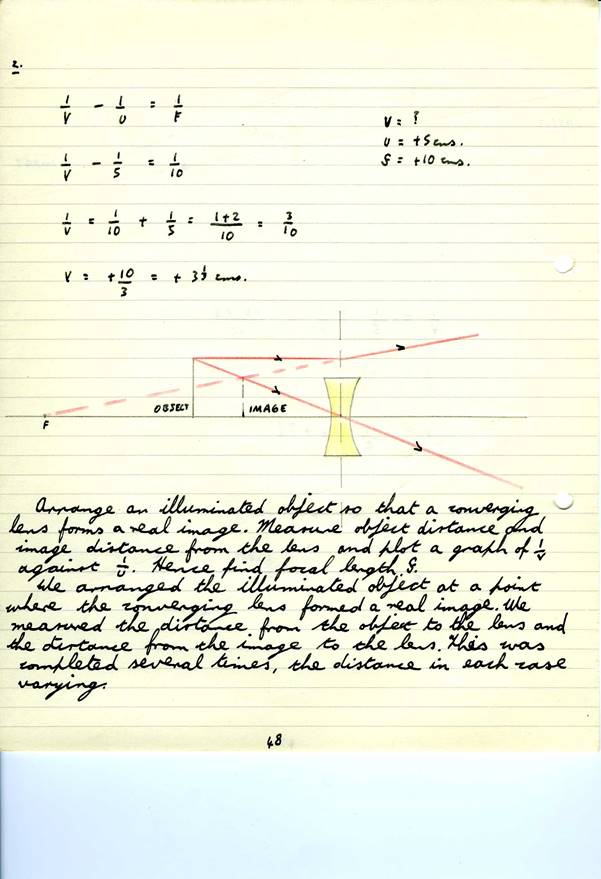 2.
1/V - 1/U = 1/F
V = ?
U = +5 cms.
f = +10 cms.
1/V - 1/5 = 1/10
1/V = 1/10 + 1/5 = 1+2/10 = 3/10
V = +10/3 = + 3 1/3 cms.
OBJECT IMAGE
F
Arrange an illuminated object so that a converging
lens forms a real image. Measure object distance and
image distance from the lens and plot a graph of 1/V
against 1/U. Hence find focal length f.
We arranged the illuminated object at a point
where the converging lens formed a real image. We
measured the distance from the object to the lens and
the distance from the image to the lens. This was
completed several times, the distance in each case
varying.
48